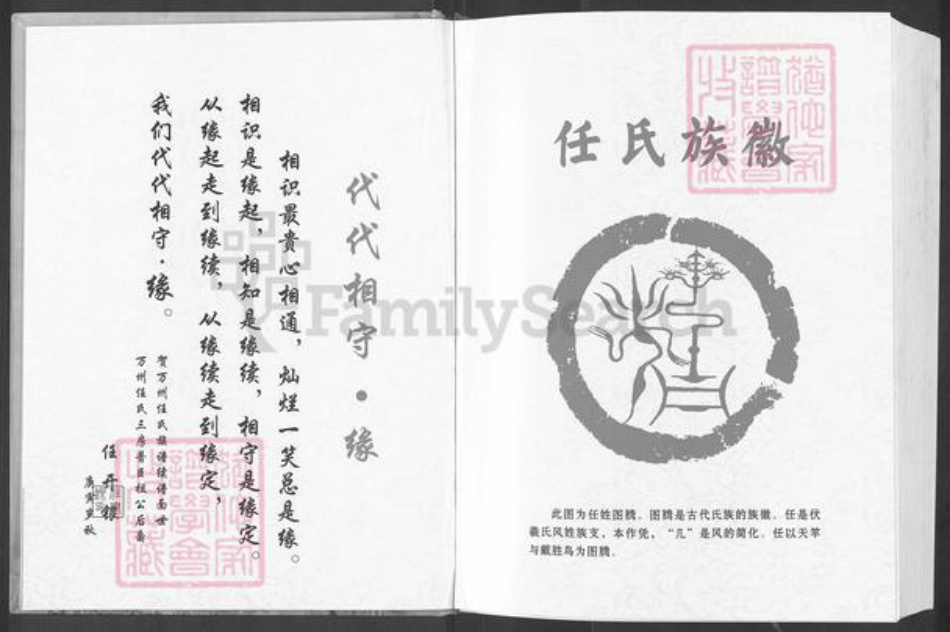 代代相守·缘
相识最贵心相通，灿烂一笑总是缘。
相识是缘起，相知是缘续，相守是缘定。
从缘起走到缘续，从缘续走到缘定，
我们代代相守·缘。
贺万州任氏族谱续谱面世
万州任氏三房普臣祖公后裔
任开
庚寅 秋
任氏族徽
此图为任姓图腾。图腾是古代氏族的族徽。任是伏
羲氏风姓族支，本作凭，“几”是风的简化。任以天竿
与戴胜鸟为图腾。
FamilySearch